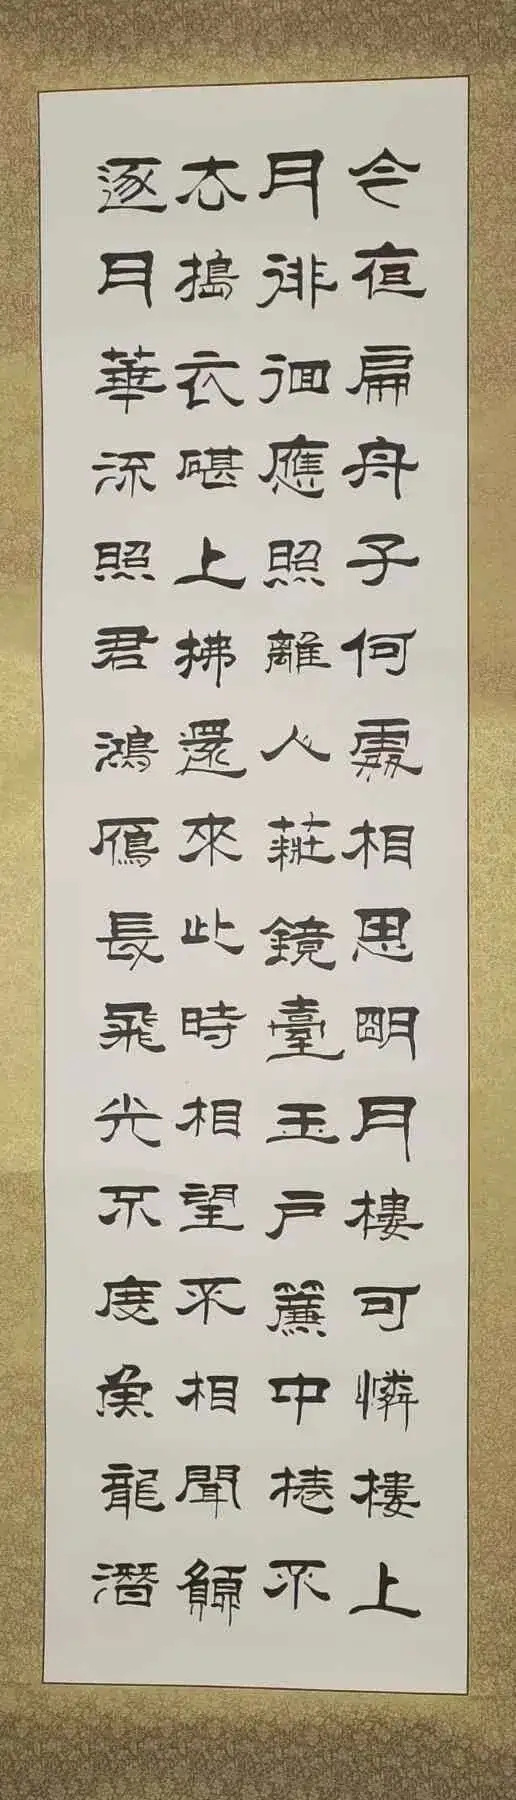 今夜扁舟子何處相思朙月樓可憐樓上
月徘徊應照離人莊鏡臺玉戶簾中捲不
去搗衣碪上拂還來此時相望不相聞願
逐月華流照君鴻鴈長飛光不度魚龍潛